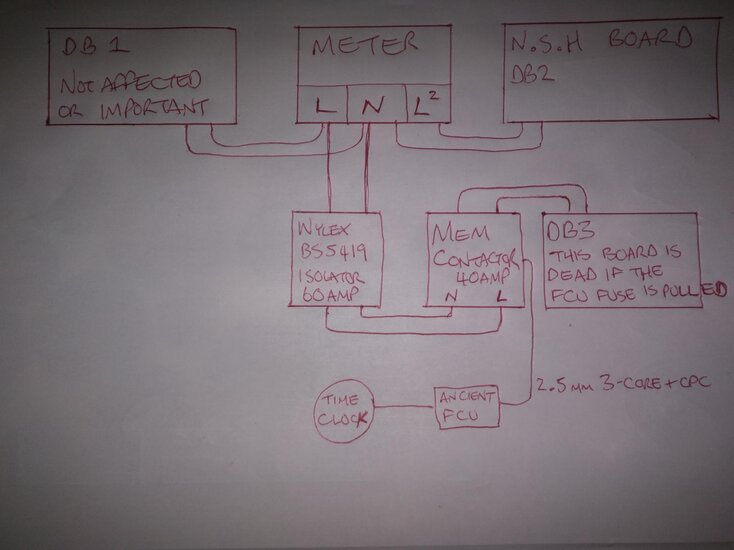 DB 1
NOT AFFECTED
OR IMPORTANT
METER
L N L²
N.S.H BOARD
DB2
WYLEX
BS5419
ISOLATOR
60AMP
MEM
CONTACTOR
40AMP
N L
DB3
THIS BOARD IS
DEAD IF THE
FCU FUSE IS PULLED
2.5MM 3-CORE + CPC
TIME
CLOCK
ANCIENT
FCU